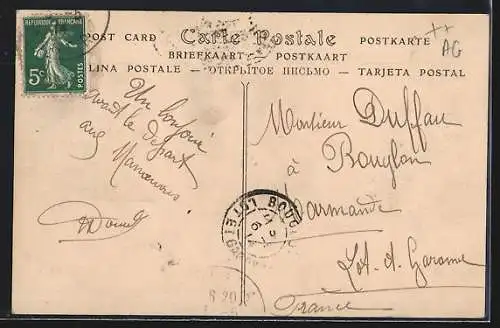 REPUBLIQUE FRANÇAISE
5c
POSTES
POST CARD
Carte Postale
POSTKARTE
BRIEFKAART — POSTKAART
LINA POSTALE — ОТКРЫТОЕ ПИСЬМО — TARJETA POSTAL
AG
Un bonjour
avant le départ
aux Manœuvres
Monsieur Duffau
à
Bouglon
Marmande
Lot-et-Garonne
France
BOUG
LOT ET G